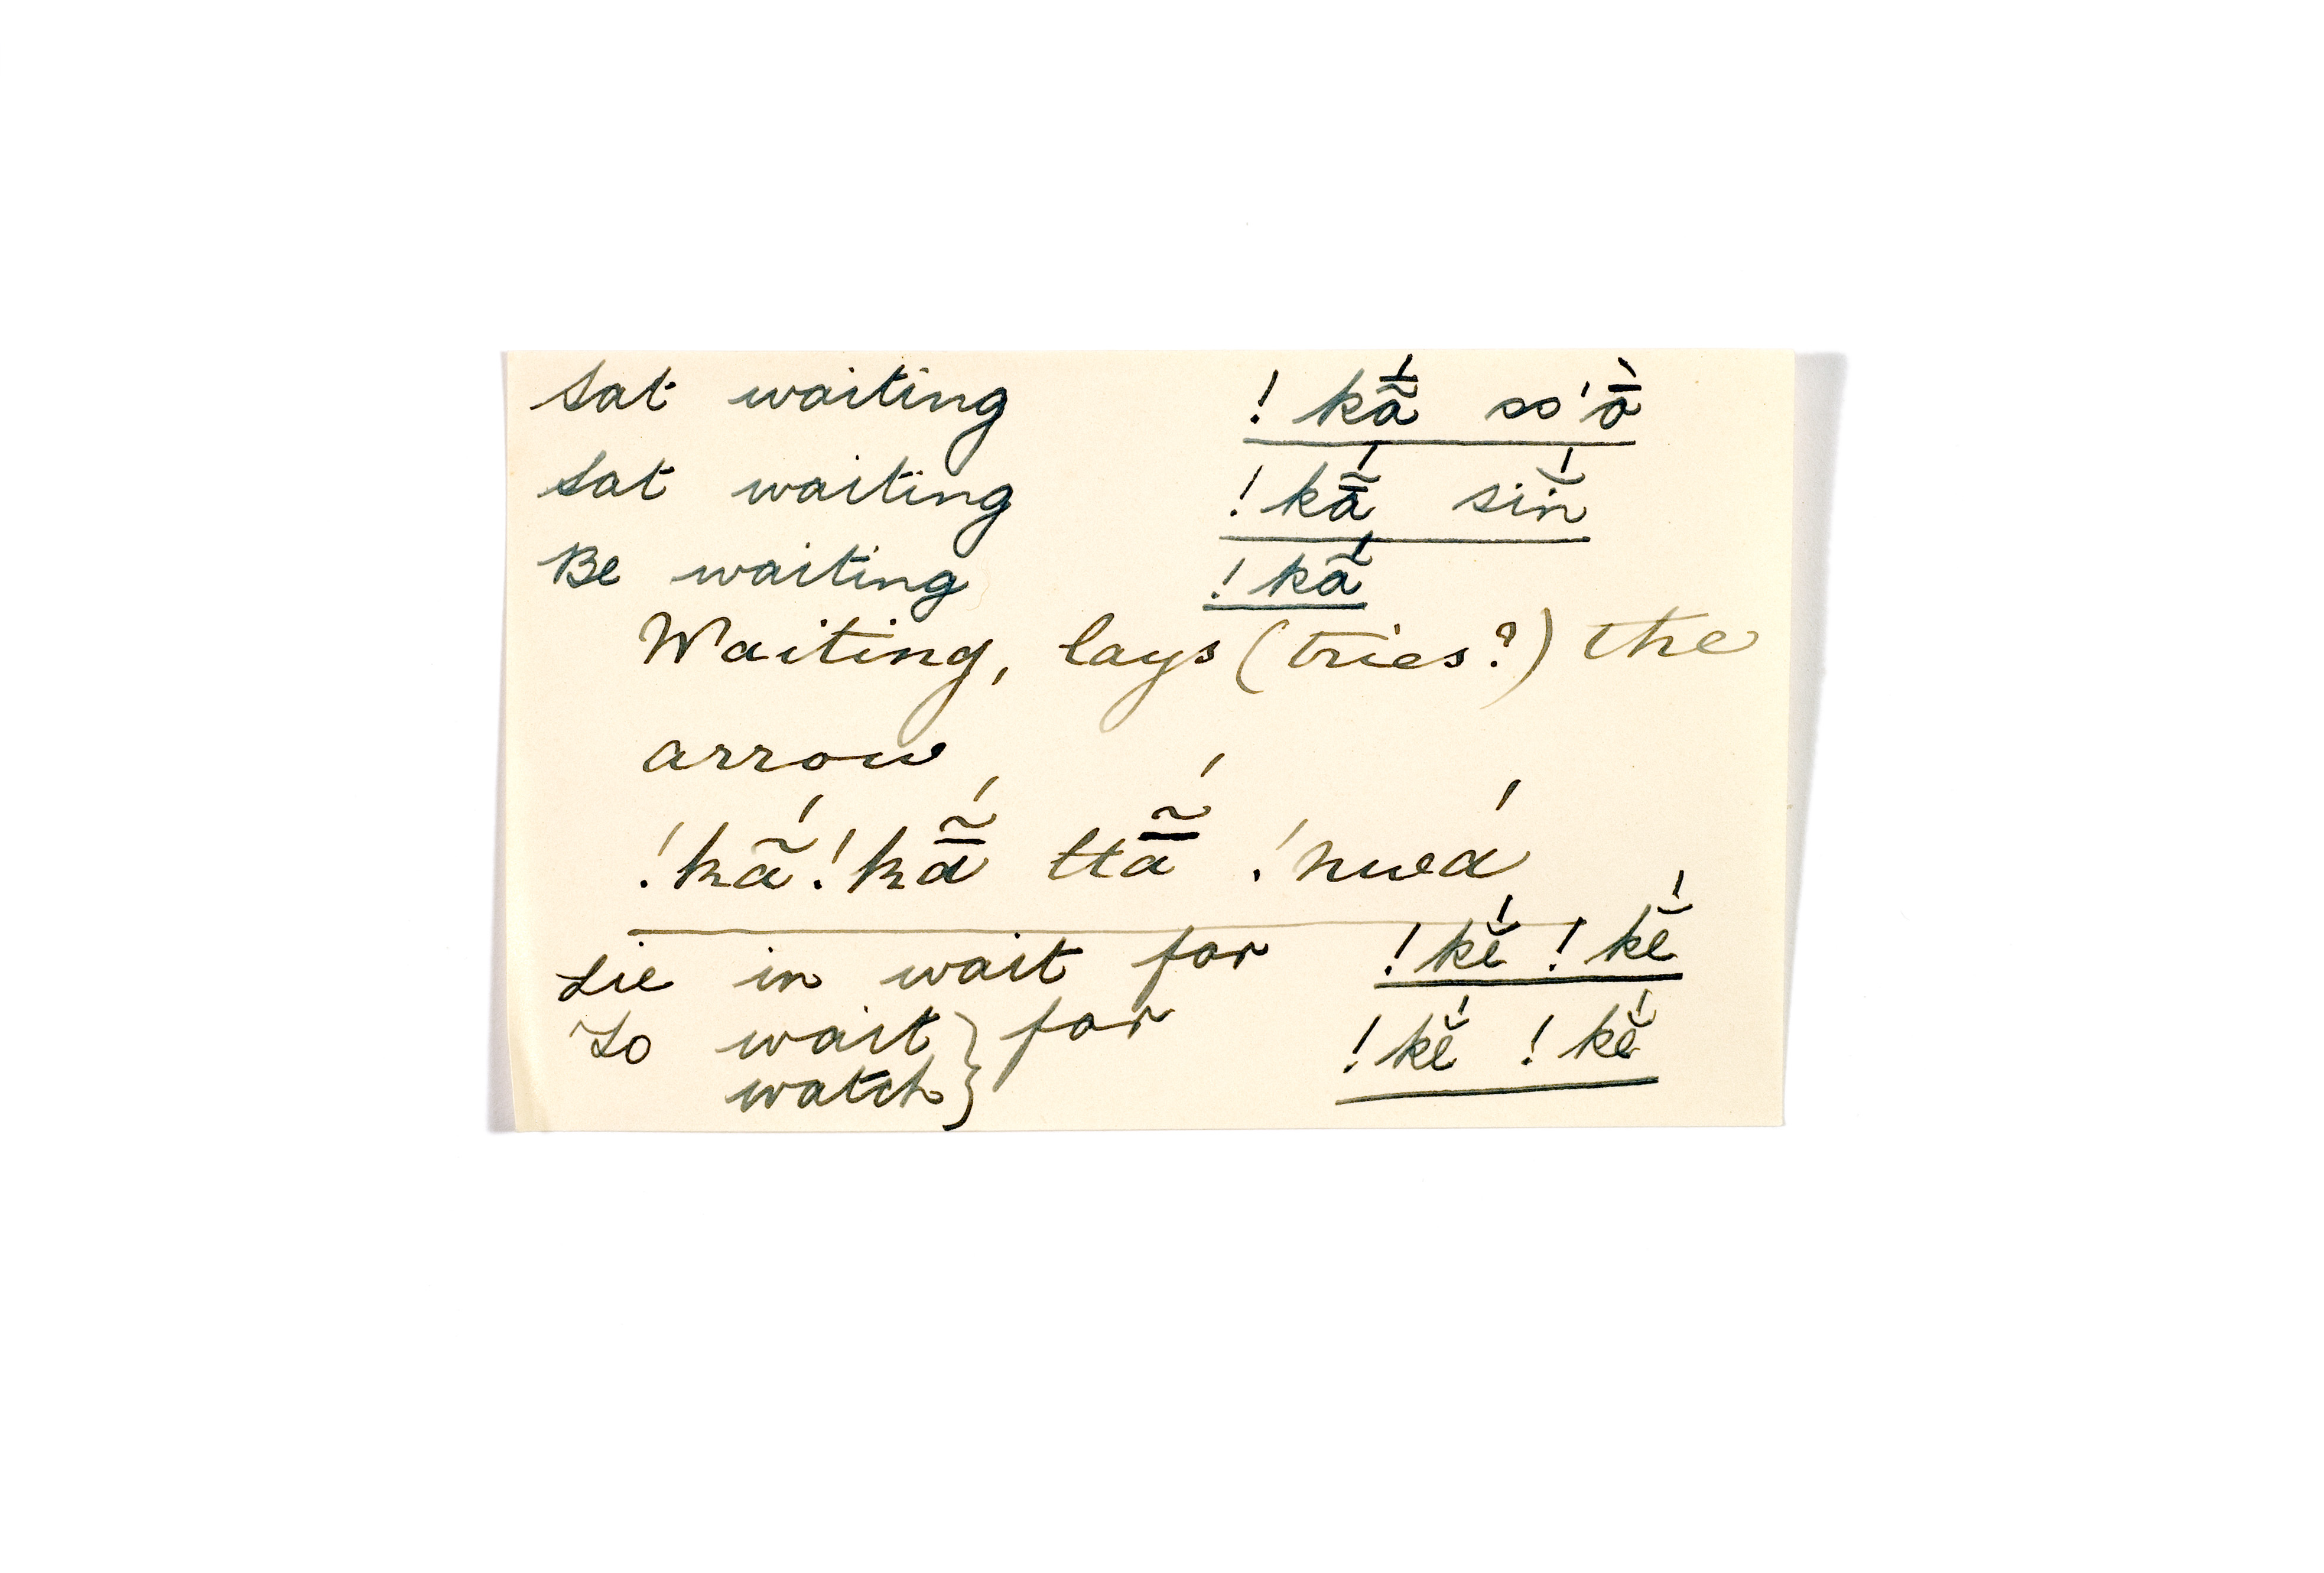 Sat waiting !kā̃́ ss'ṑ
Sat waiting !kā̃́ sĭ́n
Be waiting !kã́
Waiting, lays (tries?) the
arrow
!kã́!kā̃́ ttā̃́ !nwá
Lie in wait for !kĕ́ !kĕ́
To wait } for !kĕ́ !kĕ́
watch }